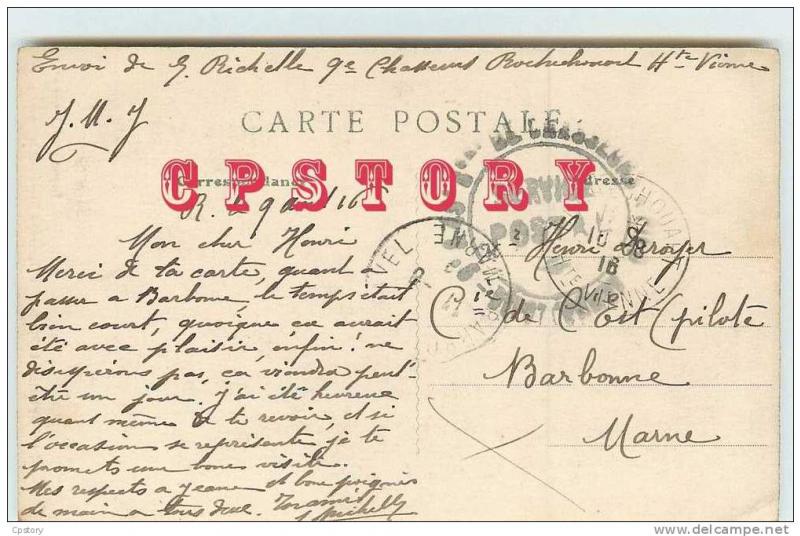 Envoi de G. Richelle 9e Chasseurs Rochechouart Hte Vienne
J. M. J
CARTE POSTALE
CPSTORY
R. le 9 aout 16
Mon cher Henri
Merci de ta carte, quant à
passer a Barbonne le temps était
bien court, quoique ça aurait
été avec plaisir, enfin! ne
désespérons pas, ça viendra peut-
être un jour. J'ai été heureux
quant même de te revoir, et si
l'occasion se représente je te
promets une bonne visite.
Mes respects a Jeanne et bonne poignée
de main a tous deux. Ton ami
Henri
C de Cast (pilote
Barbonne
Marne
Cpstory
delcampe.net